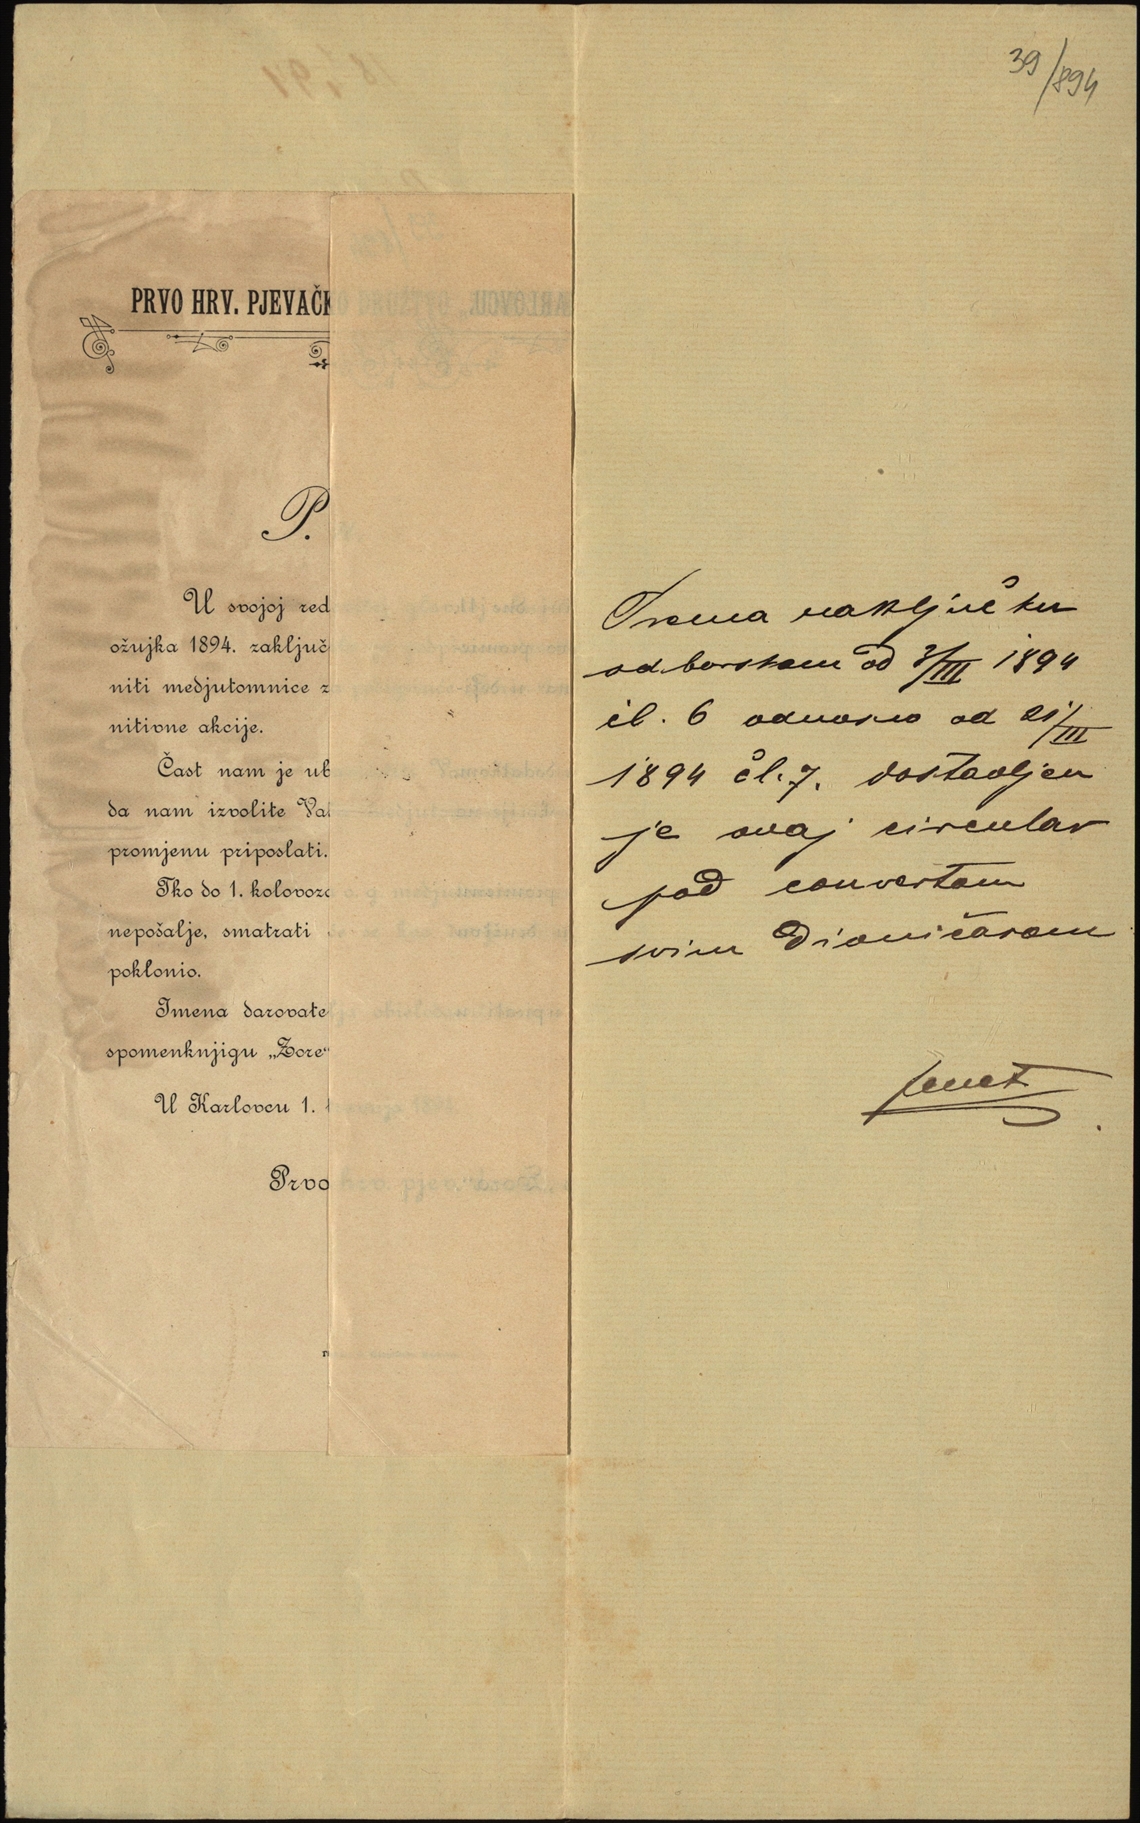 39/894
PRVO HRV. PJEVAČK
P.
U svojoj red
ožujka 1894. zaključ
niti medjutomnice z
nitivne akcije.
Čast nam je ub
da nam izvolite Va
promjenu priposlati.
Tko do 1. kolovoz
nepošalje, smatrati
poklonio.
Imena darovate
spomenknjigu „Zore“
U Karlovcu 1.
Prvo
Prema zaključku
odborskom od 3/III 1894
čl. 6 odnosno od 21/III
1894 čl. 7. dostavljen
je ovaj circular
pod convertom
svim Dioničarom